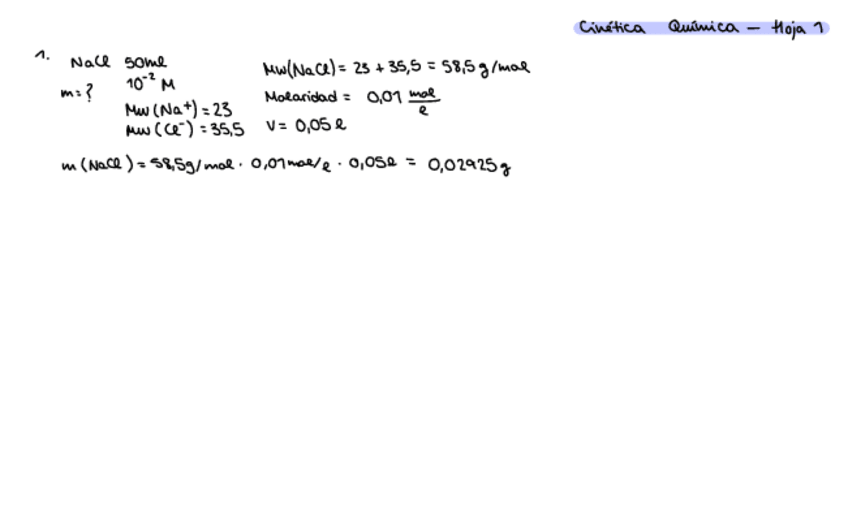 Cinética Química - Hoja 1
1. NaCl 50ml
10⁻² M
m=?
Mw(Na⁺)=23
Mw(Cl⁻)=35,5
Mw(NaCl)= 23 + 35,5 = 58,5g/mol
Molaridad = 0,01 mol/l
V= 0,05 l
m(NaCl)= 58,5g/mol · 0,01mol/l · 0,05l = 0,02925g